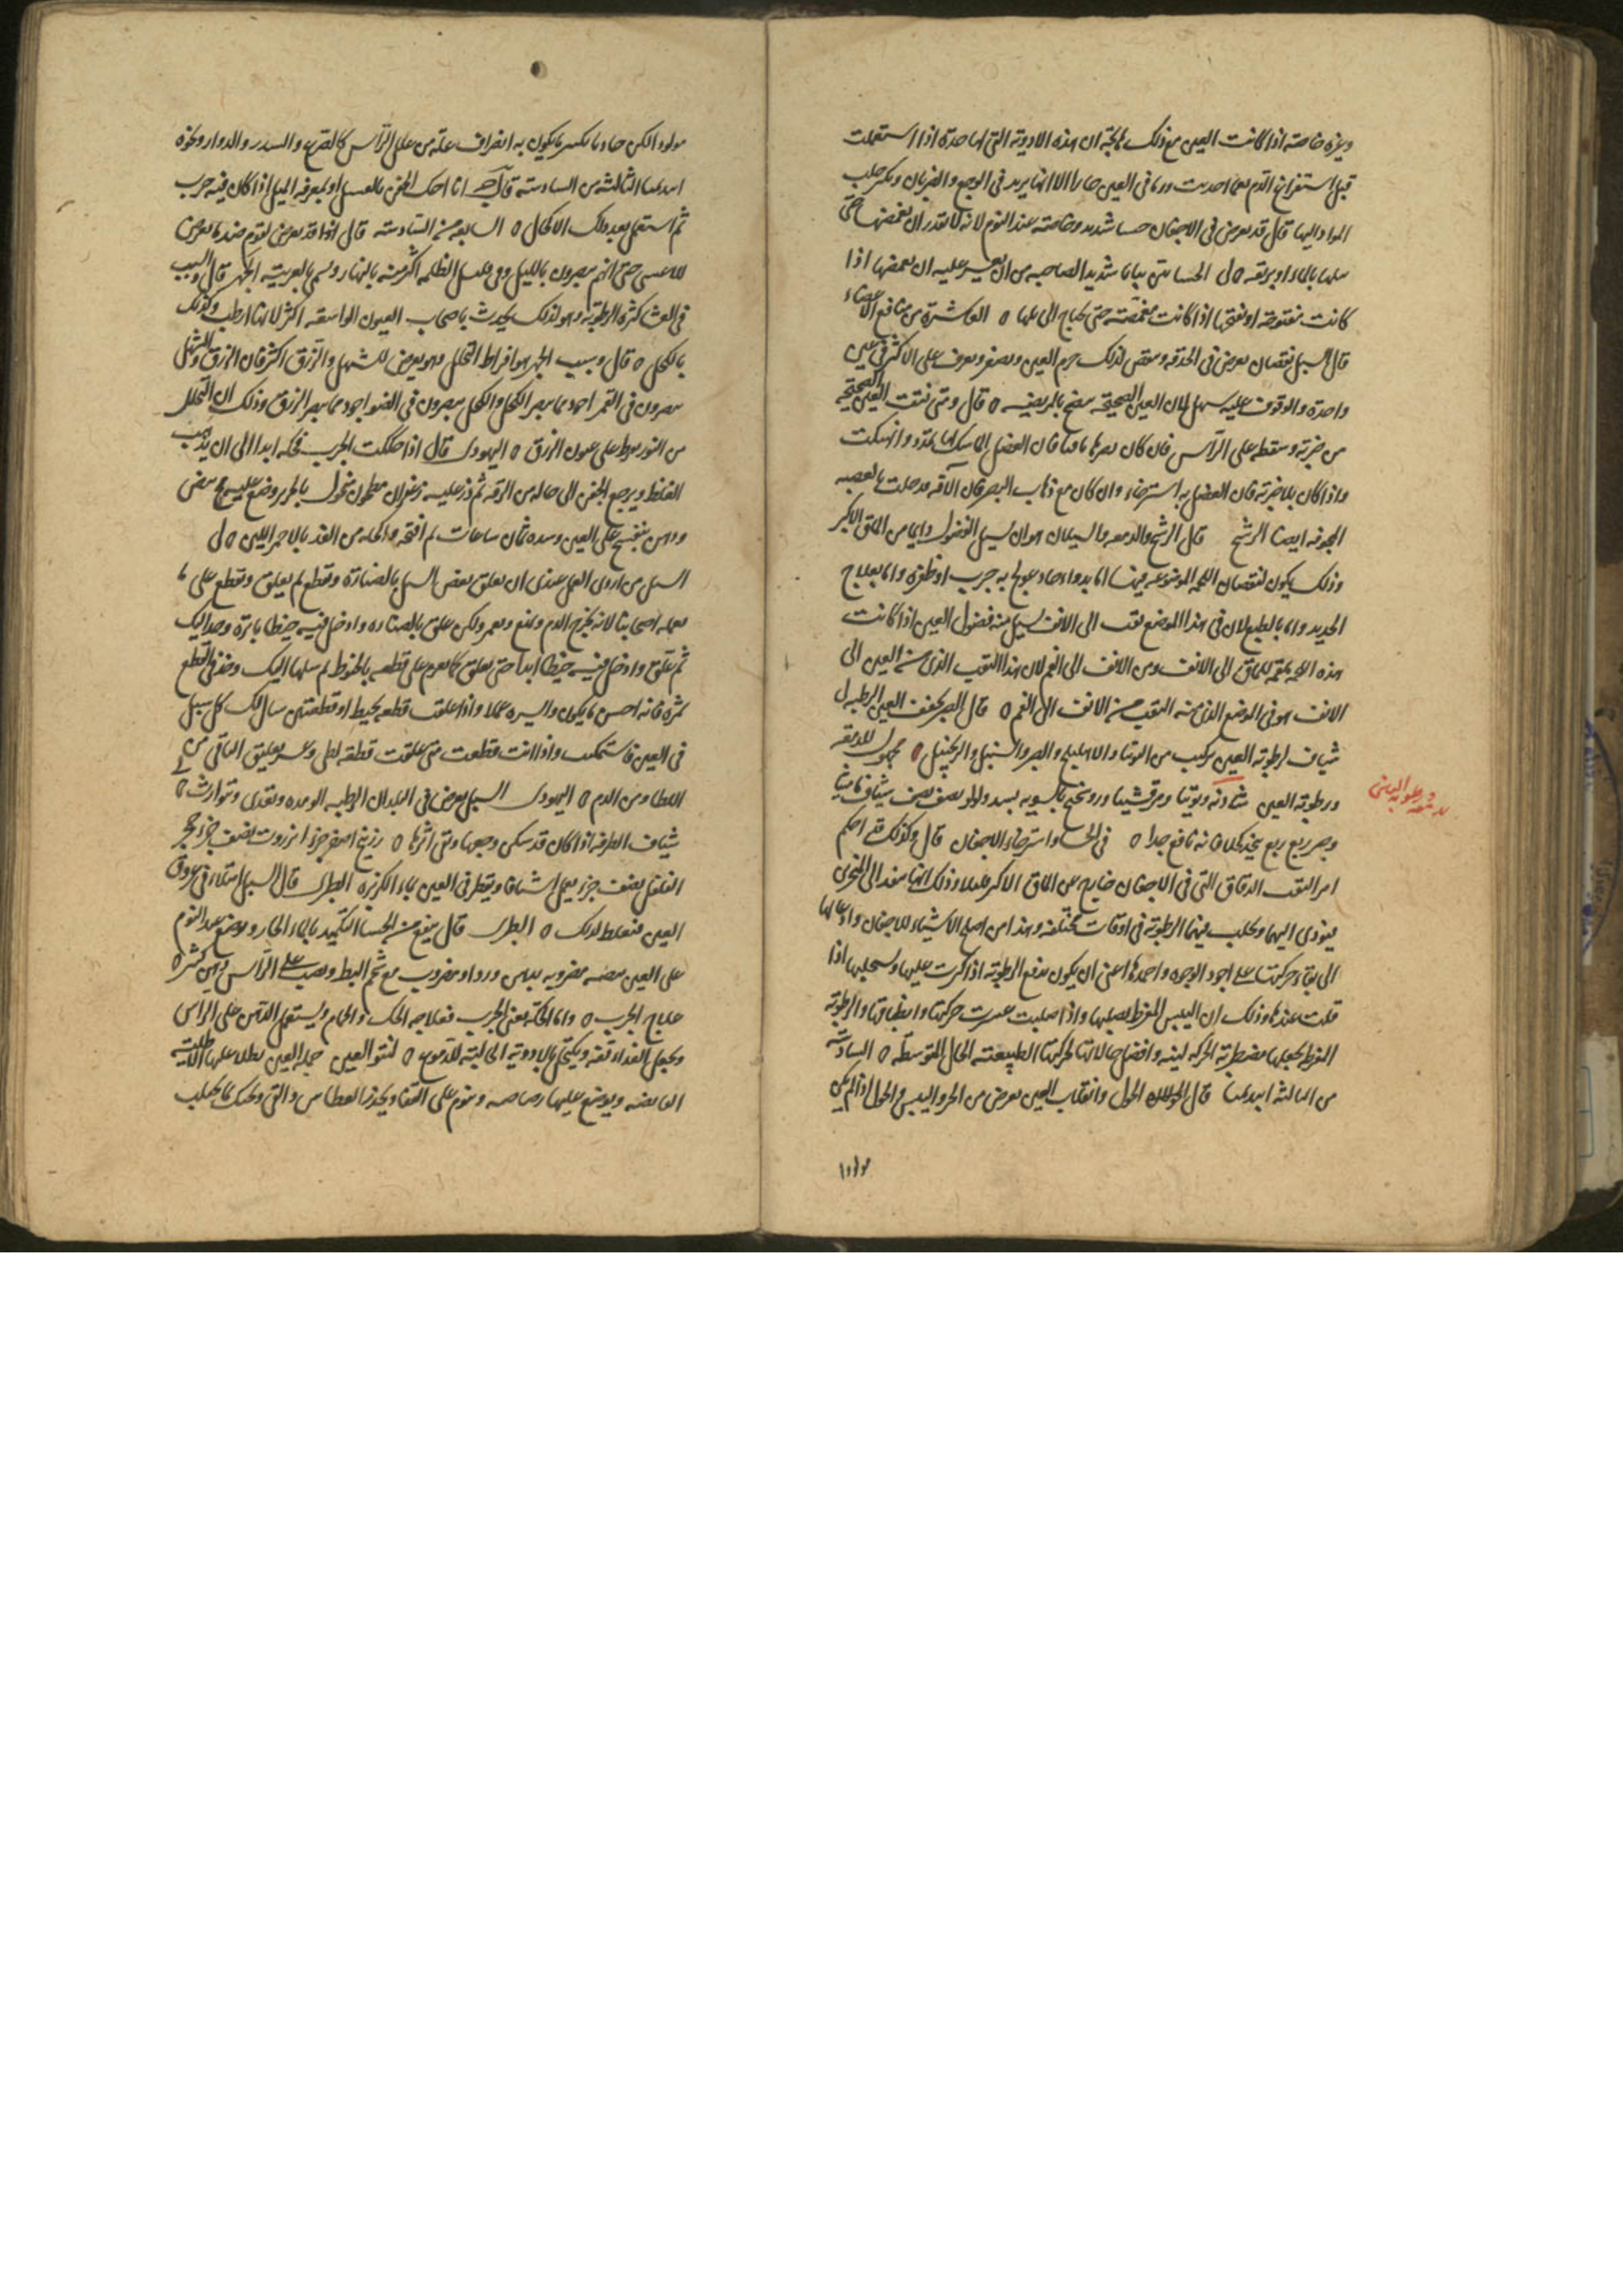 وغيره خاصة اذا كانت العين مع ذلك ان هذه الادوية التى لها حدة اذا استعملت
قبل استفراغ الدم احدثت ورما فى العين حارا الا انها يزيد فى الوجع والضربان وبكثر جلب
المواد اليها قال قد يعرض فى الاجفان جسا شديد وخاصة عند النوم لانه لا تقدر ان تغمضها حتى
يبلها بالماء او بريقه ل الجسا يتبين بيانا شديدا لصاحبه من ان يعسر عليه ان يغمضها اذا
كانت مفتوحة او يفتحها اذا كانت مغمضة حتى يحتاج الى بلها ه العاشرة من منافع الاعضاء
قال السبل نقصان يعرض فى الحدقة وينقص لذلك جرم العين ويصغر ويعرف على الاكثر فى عين
واحدة والوقوف عليه سهل لان العين الصحيحة تفضح بالمريضة ه قال ومتى نتت العين الصحيحة
من ضربة وسقطة على الراس فان كان بصرها باقيا فان العضل الماسك لها تمدد وان هتكت
واذا كان بلا ضربة فان العضل به استرخاء وان كان مع ذهاب البصر فان الآفة دخلت بالعصبة
المجوفة ايضا الرشح قال الرشح والدمعة والسيلان هو ان يسيل الفضول دايما من الماق الاكبر
وذلك يكون لنقصان اللحمة الموضوعة فيها اما بدواء حاد عولج به جرب او ظفرة واما بعلاج
الحديد واما بالطبع لان فى هذا الموضع ثقب الى الانف يسيل منه فضول العين اذا كانت
هذه اللحمة الماق الى الانف ومن الانف الى الفم لان هذا الثقب الذى من العين الى
الانف هو فى الموضع الذى منه الثقب من الانف الى الفم ه قال الصبر يجفف العين الرطبة ل
شياف لرطوبة العين مركب من التوتيا والاهليلج والصبر والسنبل والزنجبيل ه مجهول للدمعة
ورطوبة العين شادنه وتوتيا ومرقشيثا وروسختج بالسوية بسد ولؤلؤ نصف نصف شياف ماميثا
وصبر ربع ربع يتخذ كحلا فانه نافع جدا ه فى الجسا واسترخاء الاجفان قال وكذلك قد احكم
امر الثقب الدقاق التى فى الاجفان خارج عن الماق الاكبر قليلا وذلك انها تنفذ الى المنخرين
فيؤدى اليهما ويجلب فيهما الرطوبة فى اوقات مختلفة وهذا من اصلح الاشياء للاجفان
الى بقاء حركتها على اجود الوجوه واحمدها اعنى ان يكون تدفع الرطوبة اذا كثرت عليها وتستجلبها اذا
قلت عندها وذلك ان اليبس المفرط يصلبها واذا صلبت عسرت حركتها وانطباقها والرطوبة
المفرطة يجعلها مضطربة الحركة لينة وافضل حالاتها لحركتها الطبيعية الحال المتوسطة ه السادسة
من الثالثة ابيديميا قال الحول وانقلاب العين يعرض من الحر واليبس والحول اذا لم يكن
مولودا
ورطوبة العين
مولودا لكن حادثا يكون به انصراف علة من علل الراس كالصرع والسدر والدوار ونحوه
ابيديميا الثالثة من السادسة قال ج انا احك الجفن بالعسل او بمغرفة الميل اذا كان فيه جرب
ثم استعمل بعد ذلك الاكحال ه السابعة من السادسة قال انه قد يعرض لقوم ضد ما يعرض
للاعشى حتى انهم يبصرون بالليل وفى الظلمة اكثر منه بالنهار ويسمى بالعربية الجهر قال وسبب
فى العشا كثرة الرطوبة وهو لذلك يحدث باصحاب العيون الواسعة اكثر لانها ارطب وكذلك
بالكحل ه قال وسبب الجهر هو افراط التحلل وهو يعرض للشهل والزرق اكثر فان الزرق والشهل
يبصرون فى القمر اجود مما يبصر الكحل والكحل يبصرون فى الضوء اجود مما يبصر الزرق وذلك ان التحلل
من النور يفرط على عيون الزرق ه اليهودى قال اذا حككت الجرب فحكه ابدا الى ان يذهب
الغلظ ويرجع الجفن الى حاله من الرقة ثم ذر عليه زعفران مطحون منخول بالحرير وضع عليه مح بيض
ودهن بنفسج على العين وشده ثمان ساعات ثم افتحه واكحله من الغد بالاحمر اللين ه ل
السبل من اردى العمل عندى ان يعلق بعض السبل بالصنارة ويقطع ثم يعلق ويقطع على ما
يعمله اصحابنا لانه يخرج الدم ويمنع ولكن علق بالصنارة وادخل فيه خيطا بابرة ومده اليك
ثم علق وادخل فيه خيطا ابدا حتى يعلق كلما تعزم على قطعه بالخيوط ثم سلها اليك وخذ فى القطع
بمرة فانه احسن ما يكون وايسره عملا واذا علقت قطعة بخيط او قطعتين سال لك كل سبل
فى العين فاستمكنت واذا انت قطعت متى علقت قطعة وعسر تعليق الباقى من
الغطا ومن الدم ه اليهودى السبل يعرض فى البلدان الرطبة الومدة ويعدى ويتوارث ه
شياف للطرفة اذا كان قد سكن وجعها وبقى اثرها ه زرنيخ اصفر جزء انزروت نصف جزء حجر
الفلفل نصف جزء يعمل شيافا ويقطر فى العين بماء الكزبرة الطبرى قال السبل امتلاء فى عروق
العين فتغلظ لذلك ه الطبرى قال ينفع من الجسا التكميد بالماء الحار ويوضع عند النوم
على العين بيضة مضروبة بدهن ورد او مضروب مع شحم البط ويصب على الراس دهن كثيرا ه
علاج الجرب ه واما الحكة يعنى الجرب فعلاجه الحك والحمام ويستعمل الدهن على الراس
ويجعل الغذاء تفه ويكتحل بالادوية الجالبة للدموع ه لنتو العين جملة العين يطلا عليها الاطلية
القابضة ويوضع عليها رصاصة وينوم على القفا ويحذر العطاس والقى وليمسك ما يجلب